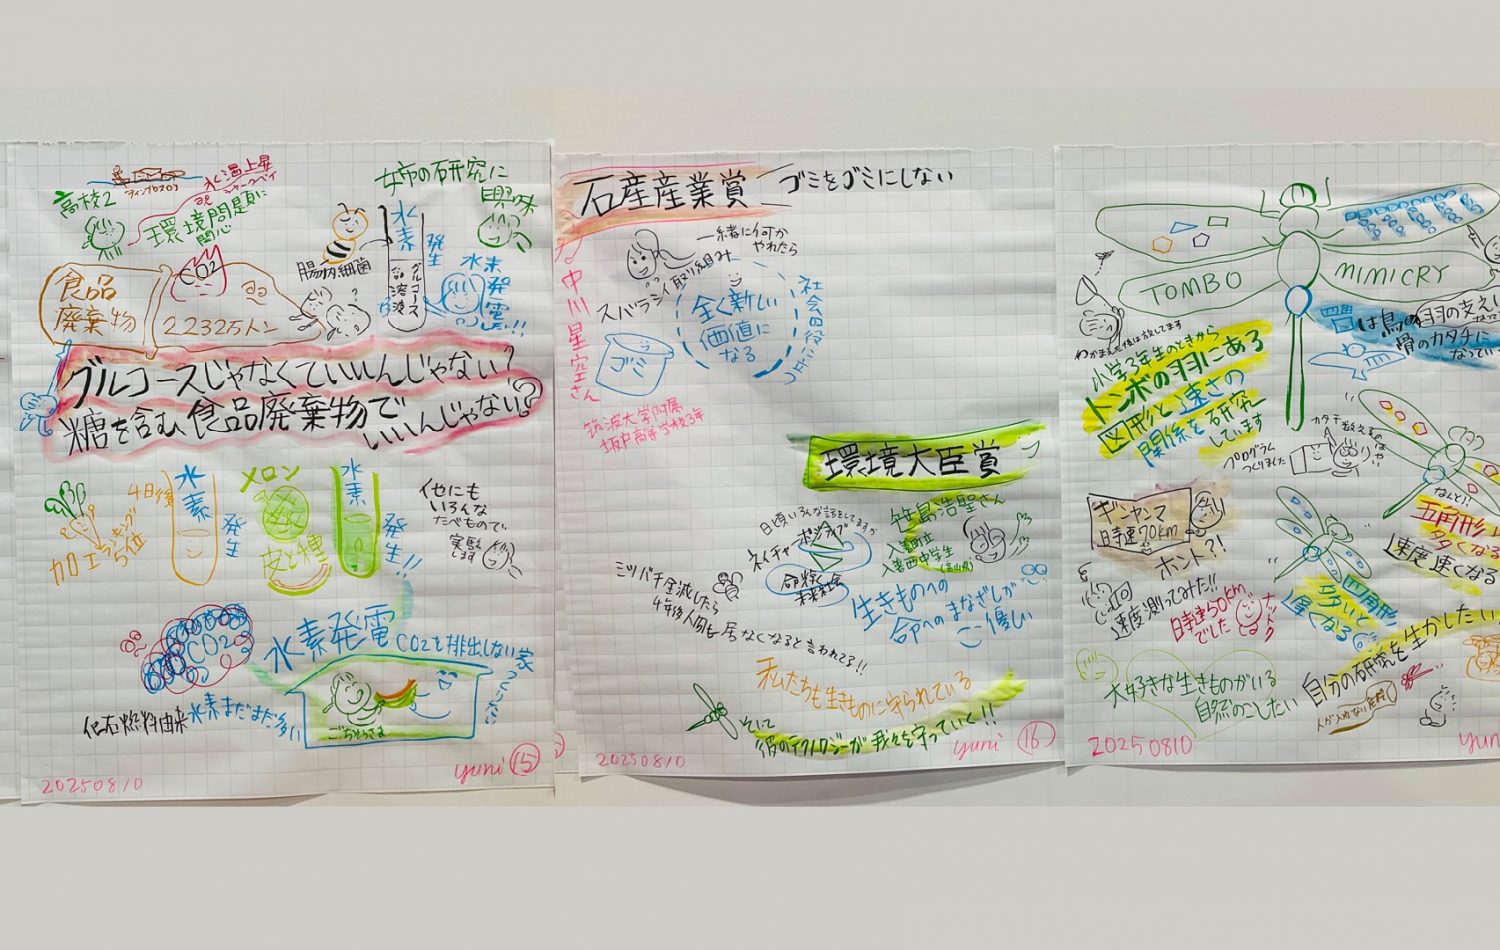 高校2
水温上昇
環境問題に
関心
姉の研究に
興味
食品
廃棄物
CO2
2232万トン
腸内細菌
水素
発生
グルコース
溶液
水素
発電
グルコースじゃなくていいんじゃない?
糖を含む食品廃棄物で
いいんじゃない?
加工
ランキング
5位
4日後
水素
発生
メロン
皮と種
水素
発生!!
他にも
いろんな
たべもので、
実験
します
CO2
水素発電
CO2を排出しない家
つくりたい
ごちそうさま
化石燃料由来
水素まだまだ多い
20250810
yuni 15
石産産業賞
ゴミをゴミにしない
中川星空さん
一緒に何か
やれたら
スバラシイ取り組み
ゴミ
全く新しい
価値に
なる
社会の役に立つ
筑波大学附属
坂戸高等学校3年
環境大臣賞
笹島浩聖さん
入善町立
入善西中学生
(富山県)
日頃いろんな話をしてますが
ネイチャーポジティブ
命輝く
未来社会
ミツバチ全滅したら
4年後人間も居なくなると言われてる!!
生きものへの
命へのまなざしが
優しい
私たちも生きものに守られている
そして
彼のテクノロジーが我々を守っていく!!
20250810
yuni 16
TOMBO
MIMICRY
つかまえた後は放してます
小学3年生のときから
トンボの羽にある
図形と速さの
関係を研究
しています
プログラム
つくりました
カタチ数えるのはやい
ギンヤンマ
時速70km
ホント?!
速度測ってみた!!
時速50km
でした
ナットク
なんと!!
五角形が
多くなると
速度速くなる
四角形
多いと
厚くなる
大好きな生きものがいる
自然のこしたい
自分の研究を生かしたい
20250810